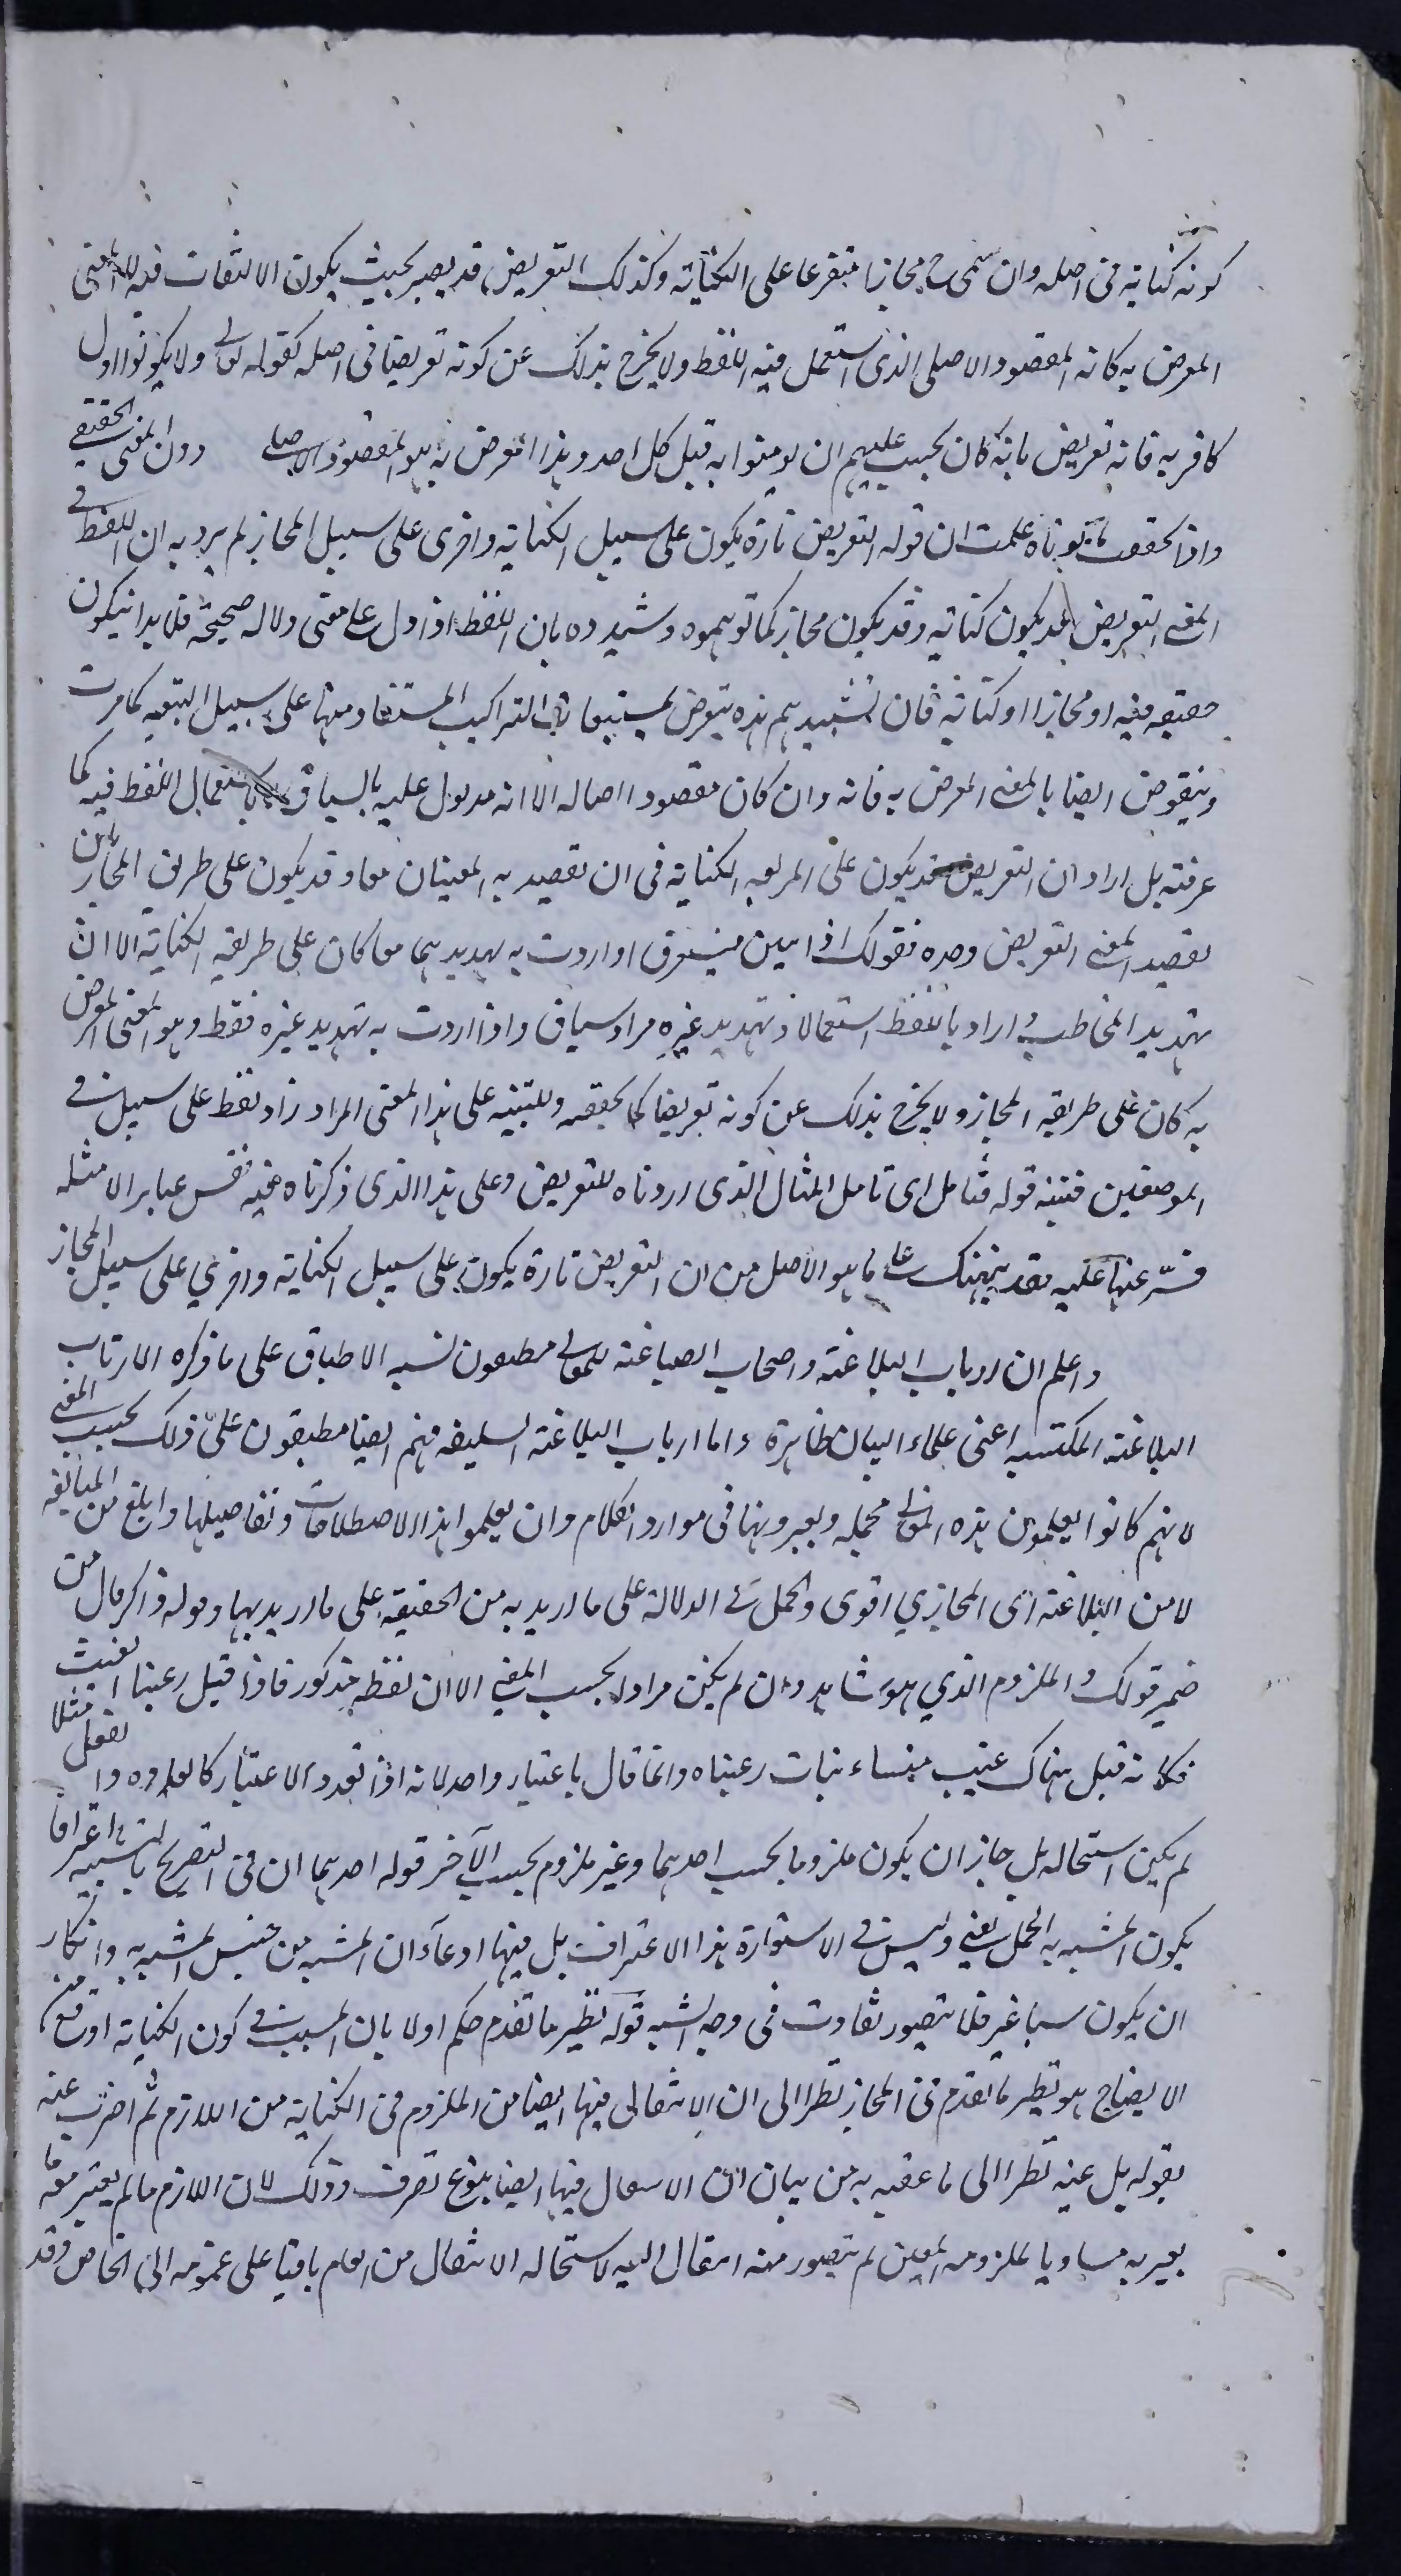 كونه كناية فى اصله وان سمى ح مجازا متفرعا على الكناية وكذلك التعريض قد يصير بحيث يكون الالتفات فيه الى المعنى
المعرض به كانه المقصود الاصلى الذى استعمل فيه اللفظ ولا يخرج بذلك عن كونه تعريضا فى اصله كقوله تعالى ولا يكونوا اول
كافر به فانه تعريض بانه كان يجب عليهم ان يومنوا به قبل كل احد وهذا المعرض به هو المقصود الاصلى دون المعنى الحقيقى
واذا تحققت ما تلوناه علمت ان قوله التعريض تارة يكون على سبيل الكناية واخرى على سبيل المجاز لم يرد به ان اللفظ فى
المعنى التعريض قد يكون كناية وقد يكون مجاز كما توهموه وشيدوه بان اللفظ اذا دل على معنى دلاله صحيحة فلا بد ان يكون
حقيقه فيه او مجازا او كناية فان تشييدهم هذه يتعرض بمستتبعات التراكيب المستفاد منها على سبيل التبعيه كما مرت
وينتقض ايضا بالمعنى المعرض به فانه وان كان مقصودا اصاله الا انه مدلول عليه بالسياق لا باستعمال اللفظ فيه كما
عرفته بل اراد ان التعريض قد يكون على طريقه الكناية فى ان يقصد به المعنيان معا وقد يكون على طريق المجاز بان
يقصد المعنى التعريض وحده فقولك اذا اردت به تهديدهما معا كان على طريقه الكناية الا ان
تهديد المخاطب مراد باللفظ استعمالا وتهديد غيره مراد سياقا واذا اردت به تهديد غيره فقط وهو المعنى المعرض
به كان على طريقه المجاز ولا يخرج بذلك عن كونه تعريضا كما تحققه وللتنبيه على هذا المعنى المراد زاد لفظ على سبيل فى
الموضعين فتنبه قوله فتامل اى تامل المثال الذى اوردناه للتعريض وعلى هذا الذى ذكرناه فيه فقس عباير الامثله
عليه فقد ينبهنك على ما هو الاصل من ان التعريض تارة يكون على سبيل الكناية واخري على سبيل المجاز
واعلم ان ارباب البلاغة واصحاب الصياغة للمعانى مطبقون نسبه الاطباق على ما ذكره الى ارباب
البلاغة المكتسبه اعنى علماء البيان ظاهرة واما ارباب البلاغة السليقه فهم ايضا مطبقون على ذلك بحسب المعنى
لانهم كانوا يعلمون هذه المعانى مجمله ويعبرونها فى موارد الكلام وان لم يعلموا هذه الاصطلاحات وتفاصيلها وابلغ من المبالغه
لا من البلاغة اى المجازى اقوى واكمل فى الدلالة على ما اريد به من الحقيقه على ما اريد بها وقوله ذاكر حال من
ضمير قولك والملزوم الذي هو شاهد وان لم يكن مرادا بحسب المعنى الا ان لفظه مذكور فاذا قيل رعينا الغيث مثلا
فكانه قيل هناك غيث منشاء نبات رعيناه وانما قال باعتبار واحد لانه اذا تعدد الاعتبار كالعلاوه و
لم يكن استحاله بل جاز ان يكون ملزوما بحسب احدهما وغير ملزوم بحسب الآخر قوله احدهما ان فى التصريح بالتشبيه اعترافا
بكون المشبه به اكمل يعنى وليس فى الاستعارة هذا الاعتراف بل فيها ادعاء ان المشبه من جنس المشبه به وانكار
ان يكون شيئا غيره فلا يتصور تفاوت فى وجه الشبه قوله نظير ما تقدم حكم اولا بان السبب فى كون الكناية اوقع من
الايضاح هو نظير ما تقدم فى المجاز نظرا الى ان الانتقال فيها ايضا من الملزوم فى الكناية من اللازم ثم اضرب عنه
بقوله بل عينه نظرا الى ما عقبه به من بيان ان الانتقال فيها ايضا بنوع تصرف وذلك لان اللازم ما لم يعتبر معه ما
يصير به مساويا لملزومه المعين لم يتصور منه انتقال اليه لاستحاله الانتقال من العام باقيا على عمومه الى الخاص وقد